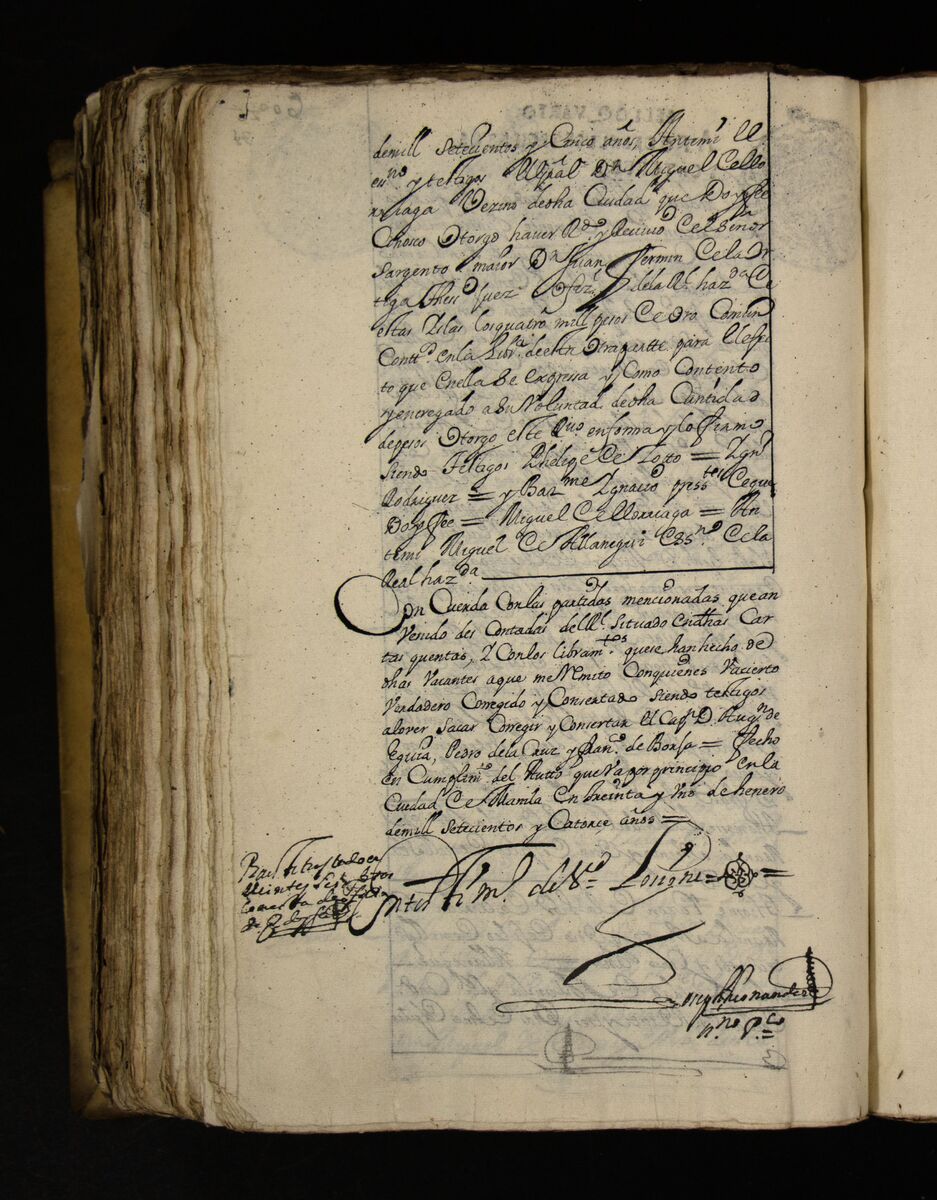 demill Setecientos y Cinco años, Antemi el
essno y testigos el Gral Dn Miguel de ello
rriaga Vezino de dha Ciudad que Doy fee
Conosco Otorgo haver Rdo y Recivido del Señor
Sargento maior Dn Juan Fermin de la Or
tiga Juez ofizl de la Rl hazda de
estas Yslas los quatro mill pesos de oro Comun
Contdos en la Libra de en Otra partte para el efec
to que en ella Se expressa y Como Contento
y entregado a Su Voluntad de dha Cantidad
de pesos Otorgo este Rvo en forma y lo firmo
Siendo testigos Phelipe de Zoto = Ygno
Rodriguez = y Barme Ygnacio pressttes de que
Doy fee = Miguel de ellorriaga = An
temi Miguel de Allanegui Essno de la
Real hazda
Con Cuerda Con las partidas mencionadas que an
Venido des Contadas del Rl Situado en dhas Car
tas quentas, Y Con los libramtos que se han hecho de
dhas Vacantes a que me Remito Con quienes Va cierto
Verdadero Corregido y Consertado Siendo testigos
a lo ver Sacar Corregir y Consertar el Capn D. Augn de
Eguia, Pedro de la Cruz y Franco de Borja = Fecho
en Cumplimto del Autto que Va por principio en la
Ciudad de Manila en treinta y Uno de henero
demill Setecientos y Catorce años =
de
Joseph Hernandez
nno Pco